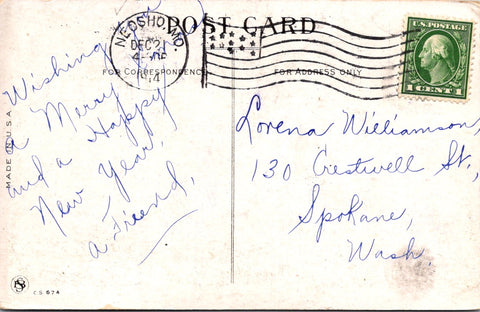 POST CARD
NEOSHO, MO.
DEC 21
1914
FOR CORRESPONDENCE
FOR ADDRESS ONLY
U.S. POSTAGE
1 CENT 1
MADE IN U.S.A.
Wishing you
a Merry
and a Happy
New Year,
a Friend,
Lorena Williamson,
130 Crestwell St,
Spokane,
Wash.
C.S. 674